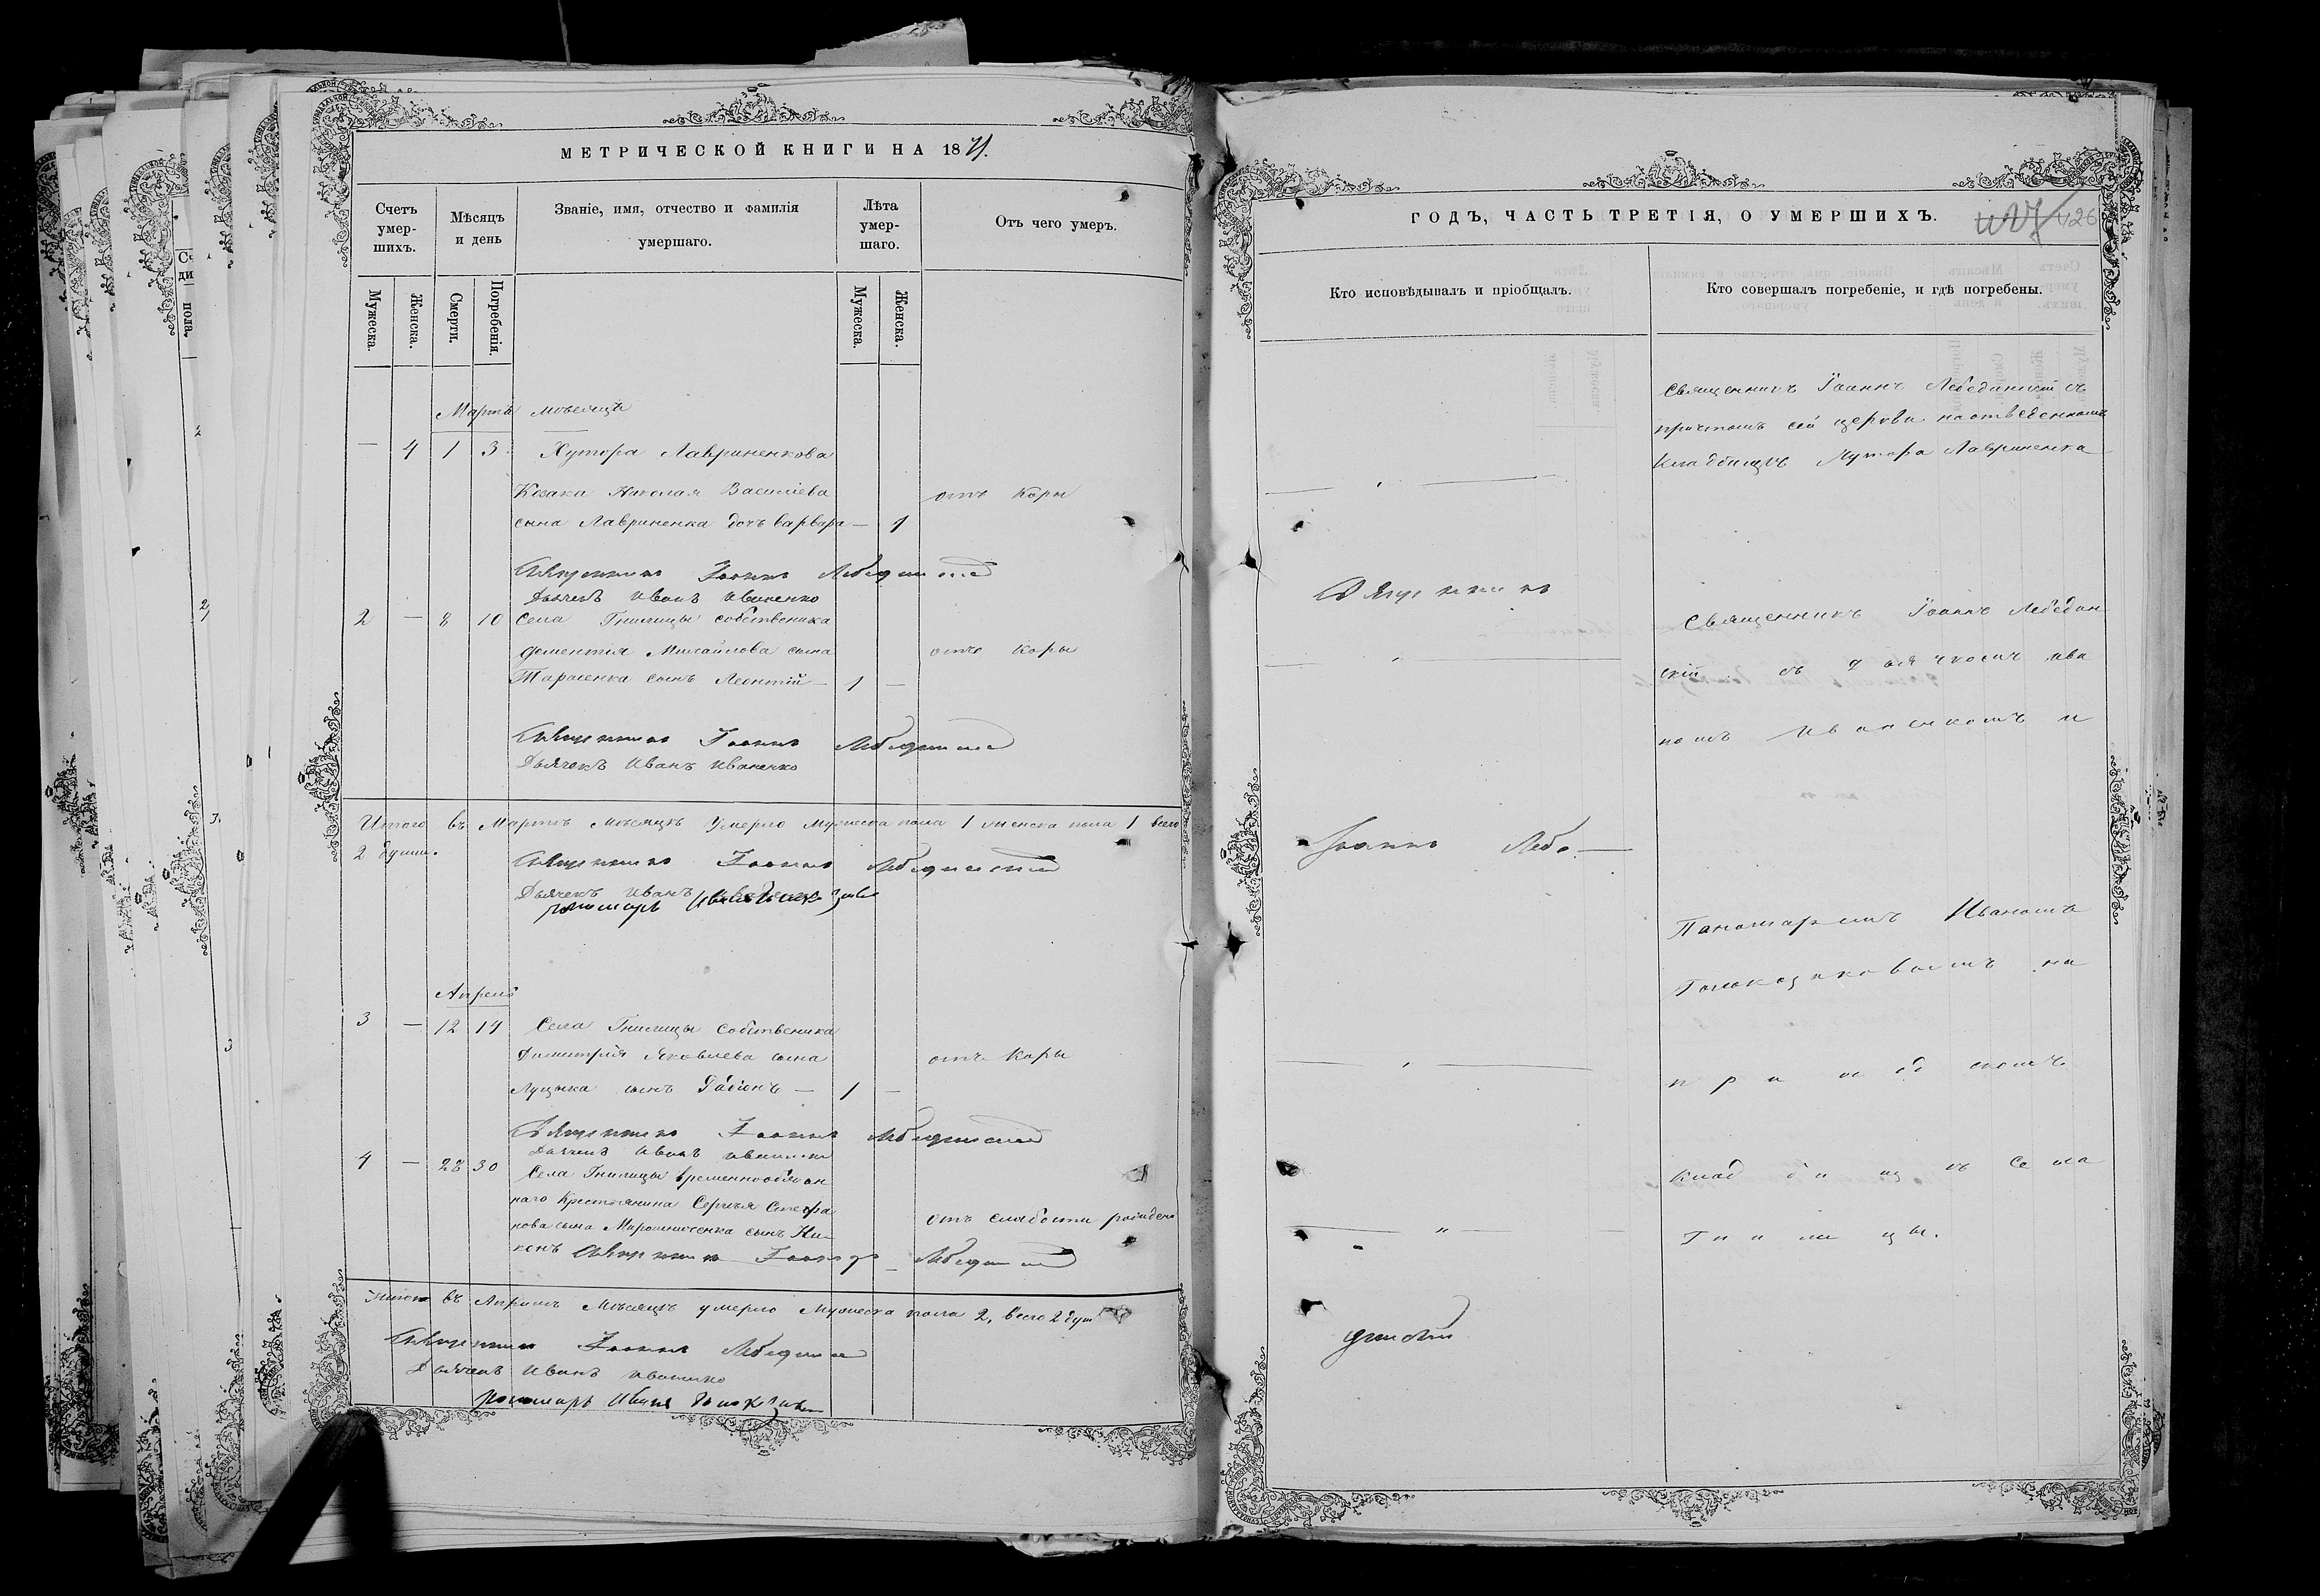 МЕТРИЧЕСКОЙ КНИГИ НА 1871.
Счетъ умер-шихъ.
Мѣсяцъ и день
Званіе, имя, отчество и фамилія умершаго.
Лѣта умер-шаго.
Отъ чего умеръ.
Мужеска.
Женска.
Смерти.
Погребенія.
Мужеска.
Женска.
Мартъ мѣсяцъ
— 4 1 3 Хутора Лавриненкова
Козака Николая Василіева отъ Кори
сына Лавриненка дочь варвара — 1
Священникъ Іоаннъ Лебединскій
Дьячекъ Иванъ Иваненко
2 — 8 10 Села Гнилицы собственика
Дементія Михайлова сына отъ Кори
Тарасенка сынъ Леонтій — 1 —
Священникъ Іоаннъ Лебединскій
Дьячекъ Иванъ Иваненко
Итого въ Мартѣ Мѣсяцѣ Умерло Мужеска пола 1 женска пола 1 всего
2 души.
Священникъ Іоаннъ Лебединскій
Дьячекъ Иванъ Иваненко
Апрель
3 — 12 14 Села Гнилицы Собственика
Димитрія Яковлева сына отъ Кори
Луцыка сынъ — 1 —
Священникъ Іоаннъ Лебединскій
Дьячекъ Иванъ Иваненко
4 — 28 30 Села Гнилицы временнообязан
наго Крестьянина Сергѣя Стефа
нова сына Мирошниченка сынъ Ни- отъ слабости рожденія
конъ Священникъ Іоаннъ Лебединскій
Итого въ Апрѣлѣ Мѣсяцѣ умерло Мужеска пола 2, всего 2 душ
Священникъ Іоаннъ Лебединскій
Дьячекъ Иванъ Иваненко
Пономарь Иванъ
ГОДЪ, ЧАСТЬ ТРЕТІЯ, О УМЕРШИХЪ.
426
Кто исповѣдывалъ и пріобщалъ.
Кто совершалъ погребеніе, и гдѣ погребены.
Священникъ Іоаннъ Лебединскій съ
причтомъ сей церкви на отведенномъ
Кладбищѣ Хутора Лавриненка
Священникъ
Священникъ Іоаннъ Лебедин
скій съ дьячкомъ Ива
номъ Иваненкомъ и
Іоаннъ Лебе—
Пономаремъ Иваномъ
на
приходскомъ
кладбищѣ Села
Гнилицы.
динскій